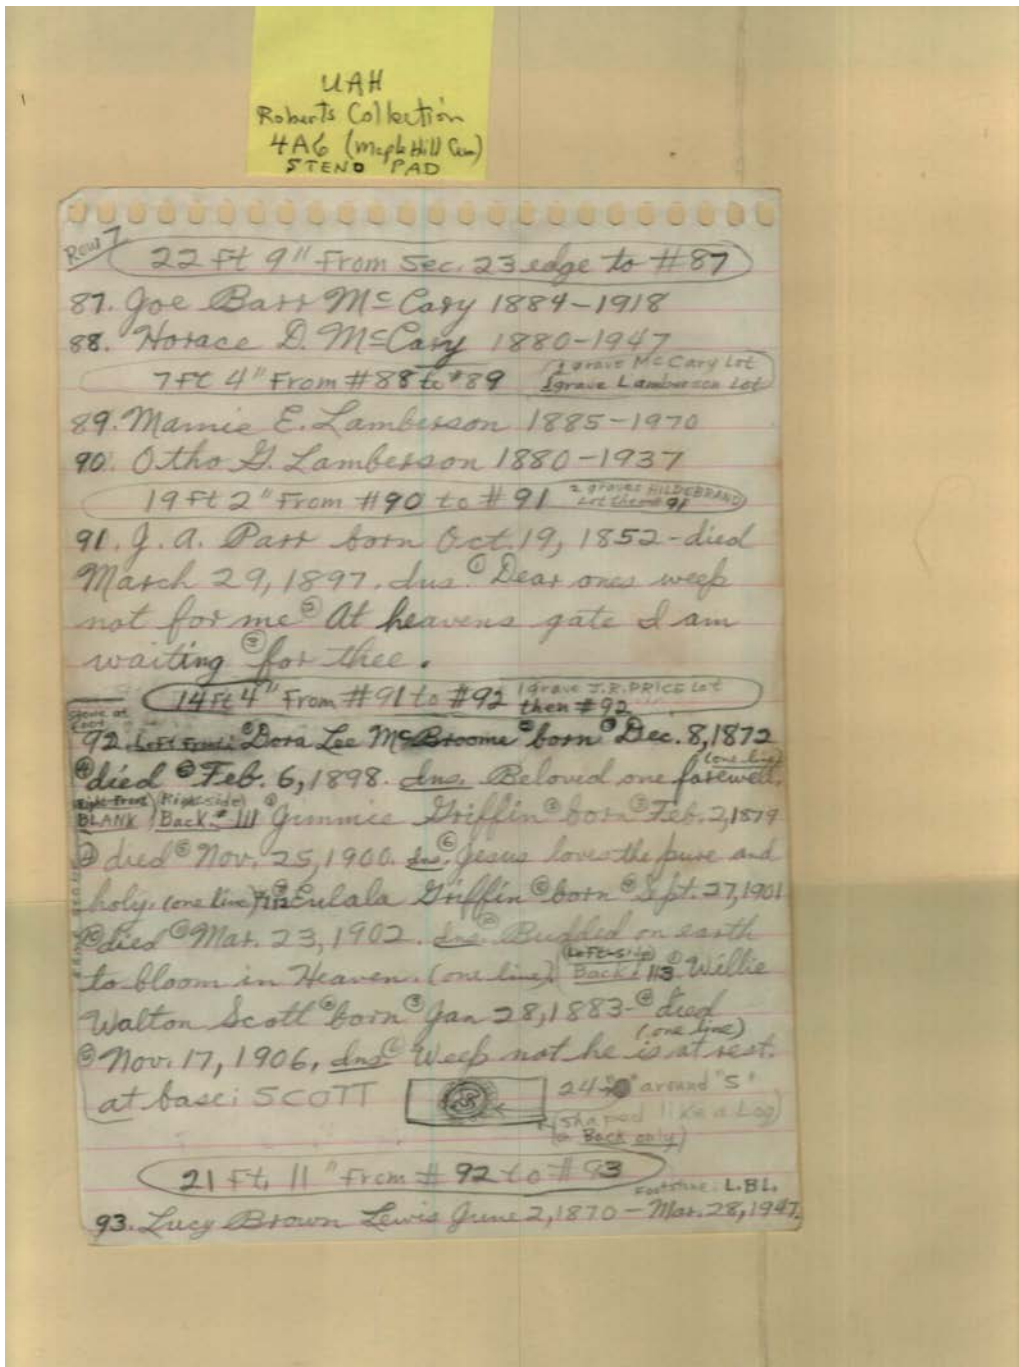 UAH
Roberts Collection
4A6 (Maple Hill Cem)
STENO PAD
Row 7
22 Ft 9" From Sec. 23 edge to #87
87. Joe Barr McCary 1884-1918
88. Horace D. McCary 1880-1947
7 Ft 4" From #88 to #89
grave McCary Lot
grave Lamberson Lot
89. Mamie E. Lamberson 1885-1970
90. Otho G. Lamberson 1880-1937
19 Ft 2" From #90 to #91
2 graves HILDEBRAND
Lot then # 91
91. J. A. Parr born Oct. 19, 1852-died
March 29, 1897. Ins. ① Dear ones weep
not for me ② At heavens gate I am
waiting ③ for thee.
14 Ft 4" From #91 to #92
1 grave J.R. PRICE Lot
then #92
Stone at
92. Left Front: Dora Lee McBroome born Dec. 8, 1872
(one line)
④ died ⑤ Feb. 6, 1898. Ins. Beloved one farewell.
Right Front) (Right side)
BLANK Back # 111 Jimmie Griffin ② born ③ Feb. 2, 1879
④ died ⑤ Nov. 25, 1900. Ins. ⑥ Jesus loves the pure and
holy. (one line) 112 Eulala Griffin born Sept. 27, 1901
died Mar. 23, 1902. Ins. Budded on earth
(Left-side)
to bloom in Heaven. (one line) Back: 113 ① Willie
Walton Scott ② born ③ Jan 28, 1883- ④ died
(one line)
⑤ Nov. 17, 1906, Ins. Weep not he is at rest.
at base: SCOTT
24 around "S"
(shaped like a Log)
Back only)
21 Ft. 11" From # 92 to # 93
Footstone: L.B.L.
93. Lucy Brown Lewis June 2, 1870 - Mar. 28, 1947.